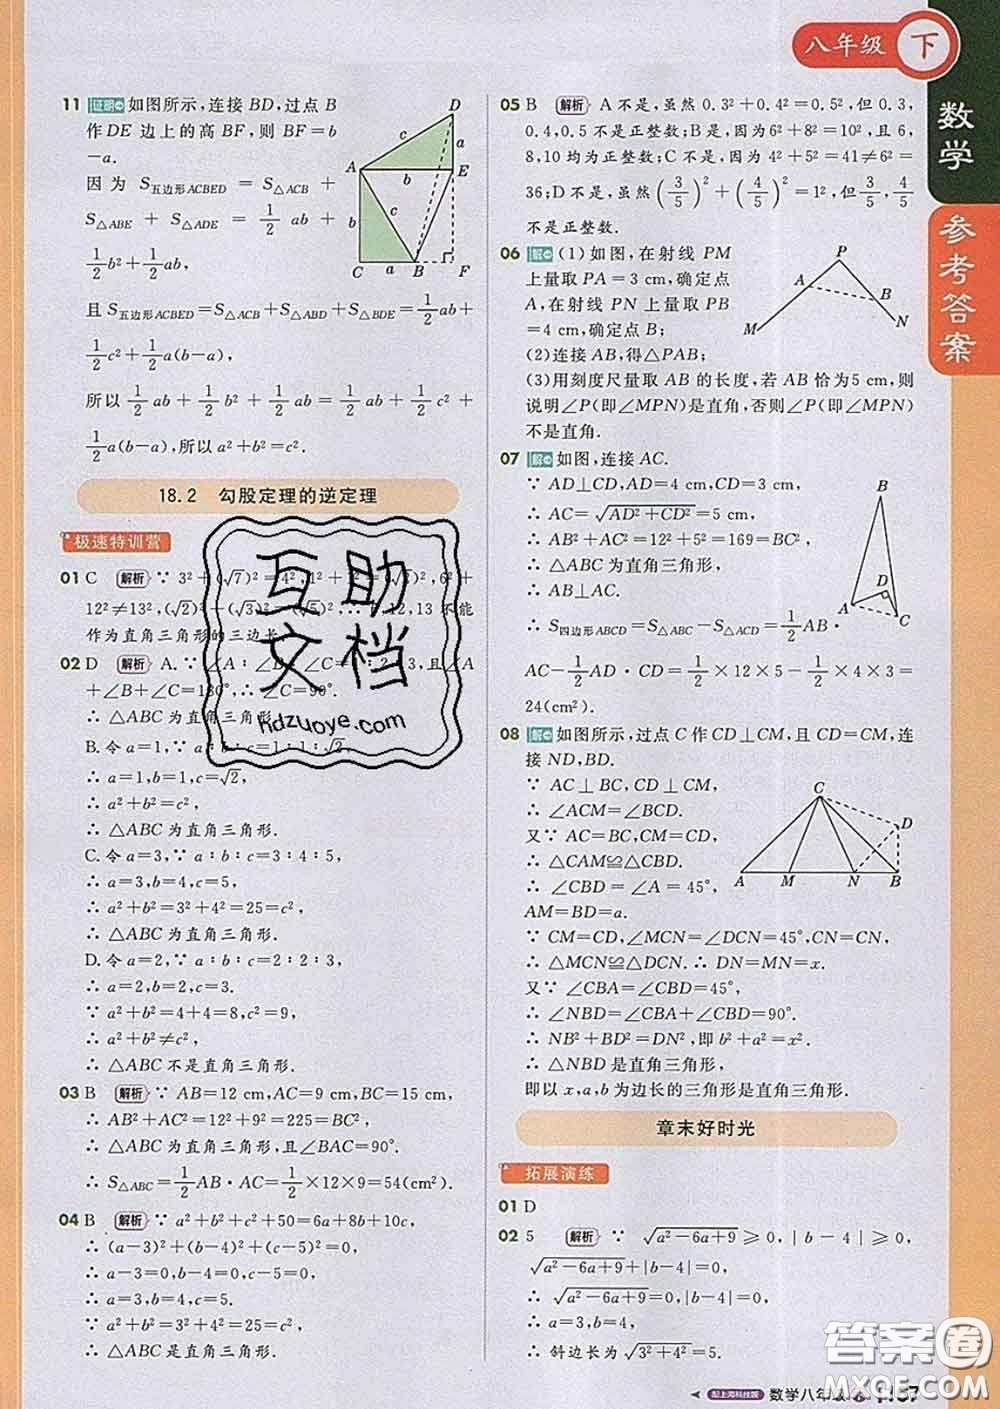 八年级 下
数学
参考答案
11 证明 如图所示,连接 BD,过点 B
作 DE 边上的高 BF,则 BF=b
-a.
因为 S五边形ACBED = S△ACB +
S△ABE + S△ADE = 1/2 ab +
1/2 b² + 1/2 ab,
且 S五边形ACBED = S△ACB + S△ABD + S△BDE = 1/2 ab +
1/2 c² + 1/2 a(b-a),
所以 1/2 ab + 1/2 b² + 1/2 ab = 1/2 ab + 1/2 c² +
1/2 a(b-a),所以 a²+b²=c².
18.2 勾股定理的逆定理
极速特训营
01 C 解析 ∵ 3²+(√7)²=4²,1²+1²=
12²≠13²,(√2)²+(√3)²=(√5)²,
作为直角三角形的三边长.
02 D 解析 A.
+∠B+∠C=180°,∴ ∠C=90°.
∴ △ABC 为直角三角形.
B. 令 a=1,∵ a∶b∶c=1∶1∶√2,
∴ a=1,b=1,c=√2,
∴ a²+b²=c²,
∴ △ABC 为直角三角形.
C. 令 a=3,∵ a∶b∶c=3∶4∶5,
∴ a=3,b=4,c=5,
∴ a²+b²=3²+4²=25=c²,
∴ △ABC 为直角三角形.
D. 令 a=2,∵ a∶b∶c=2∶2∶3,
∴ a=2,b=2,c=3.
∵ a²+b²=4+4=8,c²=9,
∴ a²+b²≠c²,
∴ △ABC 不是直角三角形.
03 B 解析 ∵ AB=12 cm,AC=9 cm,BC=15 cm,
∴ AB²+AC²=12²+9²=225=BC²,
∴ △ABC 为直角三角形,且∠BAC=90°,
∴ S△ABC = 1/2 AB·AC = 1/2 ×12×9=54(cm²).
04 B 解析 ∵ a²+b²+c²+50=6a+8b+10c,
∴ (a-3)²+(b-4)²+(c-5)²=0,
∴ a-3=0,b-4=0,c-5=0,
∴ a=3,b=4,c=5.
∵ a²+b²=3²+4²=25=c²,
∴ △ABC 是直角三角形.
05 B 解析 A 不是,虽然 0.3²+0.4²=0.5²,但 0.3,
0.4,0.5 不是正整数;B 是,因为6²+8²=10²,且 6,
8,10 均为正整数;C 不是,因为 4²+5²=41≠6²=
36;D 不是,虽然(3/5)²+(4/5)²=1²,但3/5,4/5
不是正整数.
06 解 (1)如图,在射线 PM
上量取 PA=3 cm,确定点
A,在射线 PN 上量取 PB
=4 cm,确定点 B;
(2)连接 AB,得△PAB;
(3)用刻度尺量取 AB 的长度,若 AB 恰为5 cm,则
说明∠P(即∠MPN)是直角,否则∠P(即∠MPN)
不是直角.
07 解 如图,连接 AC.
∵ AD⊥CD,AD=4 cm,CD=3 cm,
∴ AC=√(AD²+CD²)=5 cm,
∴ AC²+AB²=12²+5²=169=BC²,
∴ △ABC 为直角三角形,
∴ AB⊥AC.
∴ S四边形ABCD = S△ABC - S△ACD = 1/2 AB·
AC - 1/2 AD·CD = 1/2 ×12×5 - 1/2 ×4×3=
24(cm²).
08 解 如图所示,过点 C 作 CD⊥CM,且 CD=CM,连
接 ND,BD.
∵ AC⊥BC,CD⊥CM,
∴ ∠ACM=∠BCD.
又∵ AC=BC,CM=CD,
∴ △CAM≌△CBD.
∴ ∠CBD=∠A=45°,
AM=BD=a.
∵ CM=CD,∠MCN=∠DCN=45°,CN=CN,
∴ △MCN≌△DCN. ∴ DN=MN=x.
又∵ ∠CBA=∠CBD=45°,
∴ ∠NBD=∠CBA+∠CBD=90°.
∴ NB²+BD²=DN²,即 b²+a²=x².
∴ △NBD 是直角三角形,
即以 x,a,b 为边长的三角形是直角三角形.
章末好时光
拓展演练
01 D
02 5 解析 ∵ √(a²-6a+9)≥0,|b-4|≥0,
√(a²-6a+9)+|b-4|=0,
∴ √(a²-6a+9)=0,|b-4|=0,
∴ a=3,b=4,
∴ 斜边长为√(3²+4²)=5.
配上海科技版 数学八年级
互助
文档
hdzuoye.com
答案圈
MXQE.COM